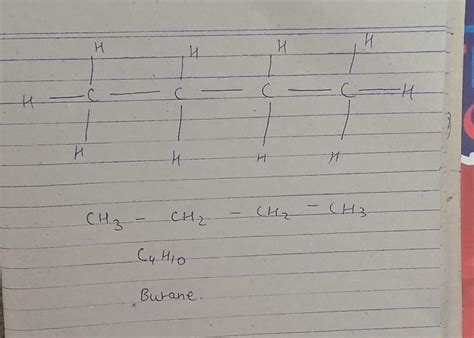 H H H H
H = C — C — C — C = H
H H H H
CH₃ - CH₂ - CH₂ - CH₃
C₄H₁₀
Butane.